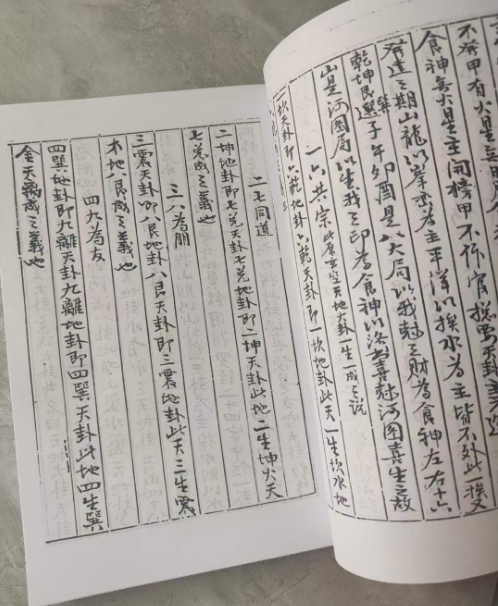 不發甲有火星
食神無火星主開榜甲不作官天卦
發達之期山龍以為主平洋以挨水為主皆不外此一挨又
乾坤艮巽子午卯酉是八大局以我尅之財為食神左右十六
山是河圖局以生我之印為食神以洛書喜尅河圖喜生之故
一六共宗 空天地大卦一生一成之説
坎天卦即六乾地卦六乾天卦即一坎地卦此天一生坎水地
二七同道
二坤地卦即七兌天卦七兌地卦即二坤天卦此地二生坤火天
七兌成之義也
三八為朋
三震天卦即八艮地卦八艮天卦即三震地卦此天三生震
木地八艮成之義也
四九為友
四巽地卦即九離天卦九離地卦即四巽天卦此地四生巽
金天九離成之義也